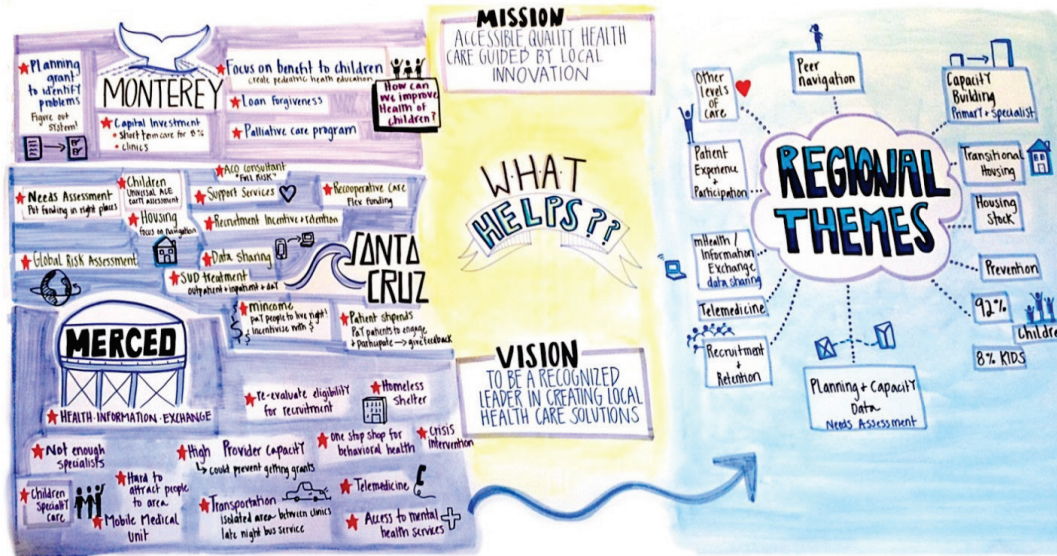 Planning
grant
to identify
problems
Figure out
System!
MONTEREY
Capital Investment
short term care for 8%
clinics
Focus on benefit to children
create pediatric health education
Loan forgiveness
Palliative care program
How can
we improve
Health of
children?
Needs Assessment
Put funding in right places
Children
Universal ACE
early assessment
ACO consultant
"Full Risk"
Support Services
Recooperative Care
Flex funding
Housing
focus on navigation
Recruitment Incentive + retention
Global Risk Assessment
Data Sharing
SUD treatment
outpatient + inpatient + day
SANTA
CRUZ
mincome
pay people to live right!
incentivise with $
Patient stipends
Pay patients to engage
+ participate → give feedback
MERCED
HEALTH·INFORMATION·EXCHANGE
re-evaluate eligibility
for recruitment
Homeless
shelter
Not enough
specialists
High Provider Capacity
↳ could prevent getting grants
One stop shop for
behavioral health
Crisis
Intervention
Children
Specialty
care
Hard to
attract people
to area
Mobile Medical
Unit
Transportation
isolated area between clinics
late night bus service
Telemedicine
Access to mental
health services
MISSION
ACCESSIBLE QUALITY HEALTH
CARE GUIDED BY LOCAL
INNOVATION
WHAT
HELPS??
VISION
TO BE A RECOGNIZED
LEADER IN CREATING LOCAL
HEALTH CARE SOLUTIONS
REGIONAL
THEMES
Other
levels of
care
Peer
navigation
Capacity
Building
Primary + Specialist
Patient
Experience
+
Participation
Transitional
Housing
Housing
Stock
mHealth /
Information
Exchange
data sharing
Prevention
Telemedicine
92%
Children
8% KIDS
Recruitment
+
Retention
Planning + Capacity
Data
Needs Assessment